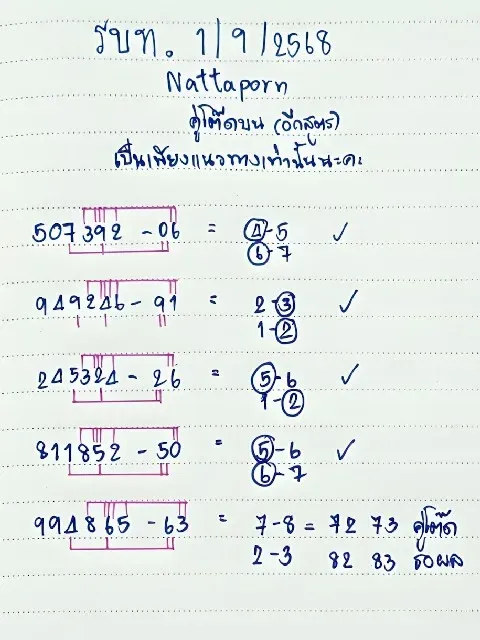 รบท. 1/9/2568
Nattaporn
คู่โต๊ดบน (อีกสูตร)
เป็นเพียงแนวทางเท่านั้นนะคะ
507392 - 06 = 4-5 ✓
6-7
949246 - 91 = 2-3 ✓
1-2
245324 - 26 = 5-6 ✓
1-2
811852 - 50 = 5-6 ✓
6-7
994865 - 63 = 7-8 = 72 73 คู่โต๊ด
2-3 82 83 รอผล